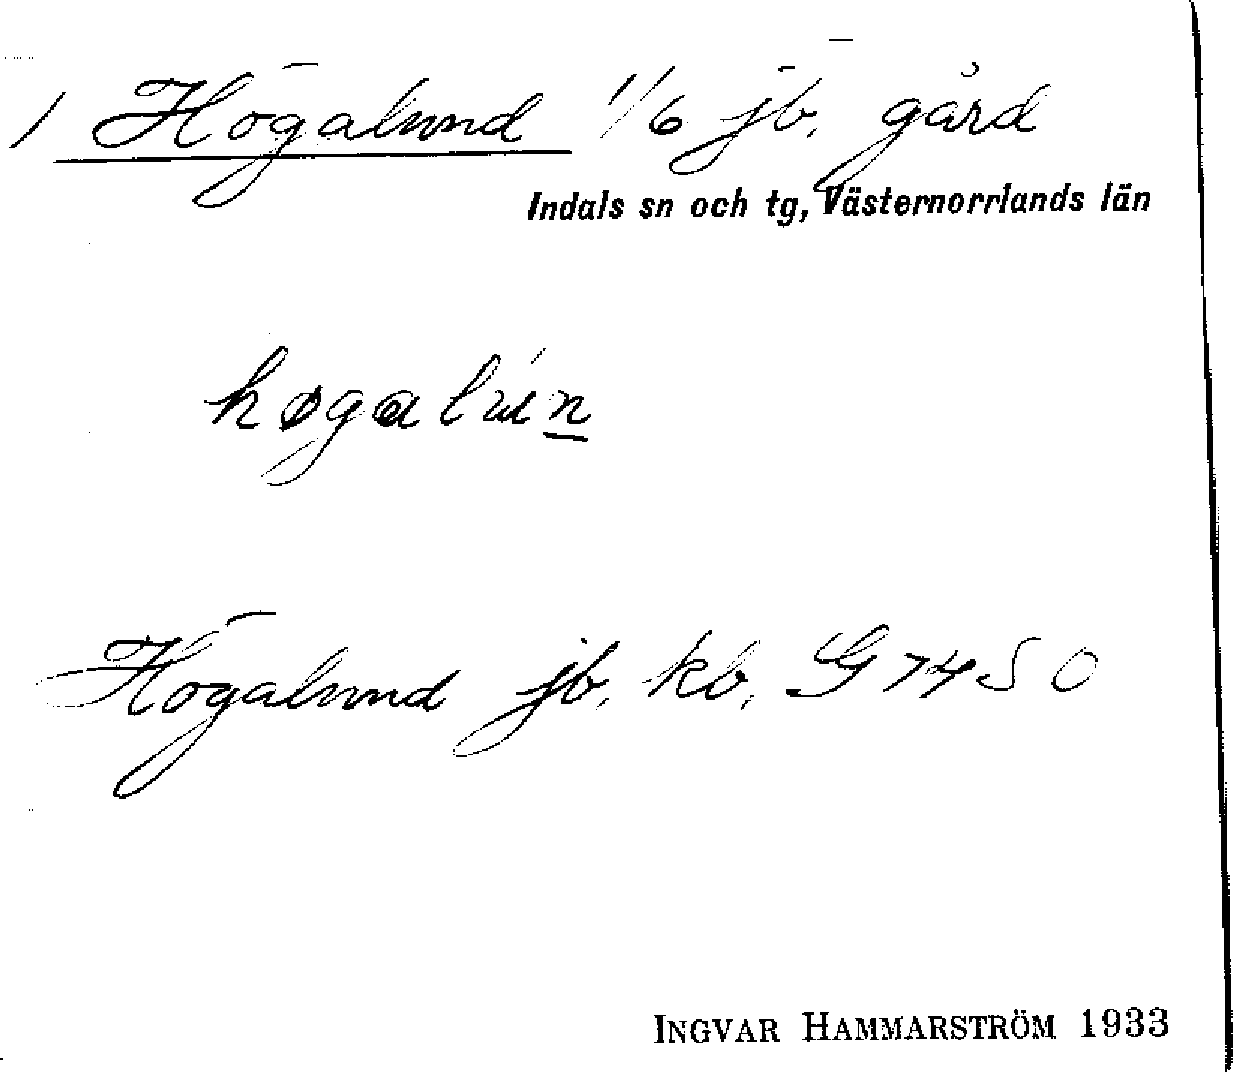 1 Högalund 1/6 jb. gård
Indals sn och tg, Västernorrlands län
høgalún
Högalund jb, kb, G 74 S O
INGVAR HAMMARSTRÖM 1933